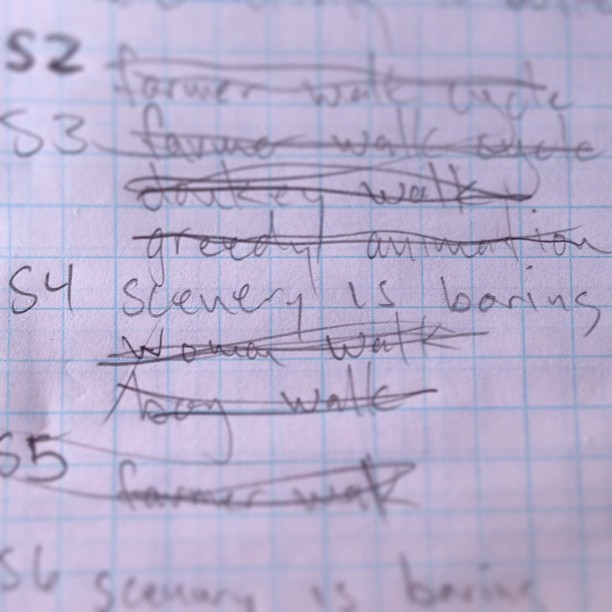 S2 farmer walk cycle
S3 farmer walk cycle
donkey walk
greedy animation
S4 scenery is boring
woman walk
boy walk
S5 farmer walk
S6 scenery is boring